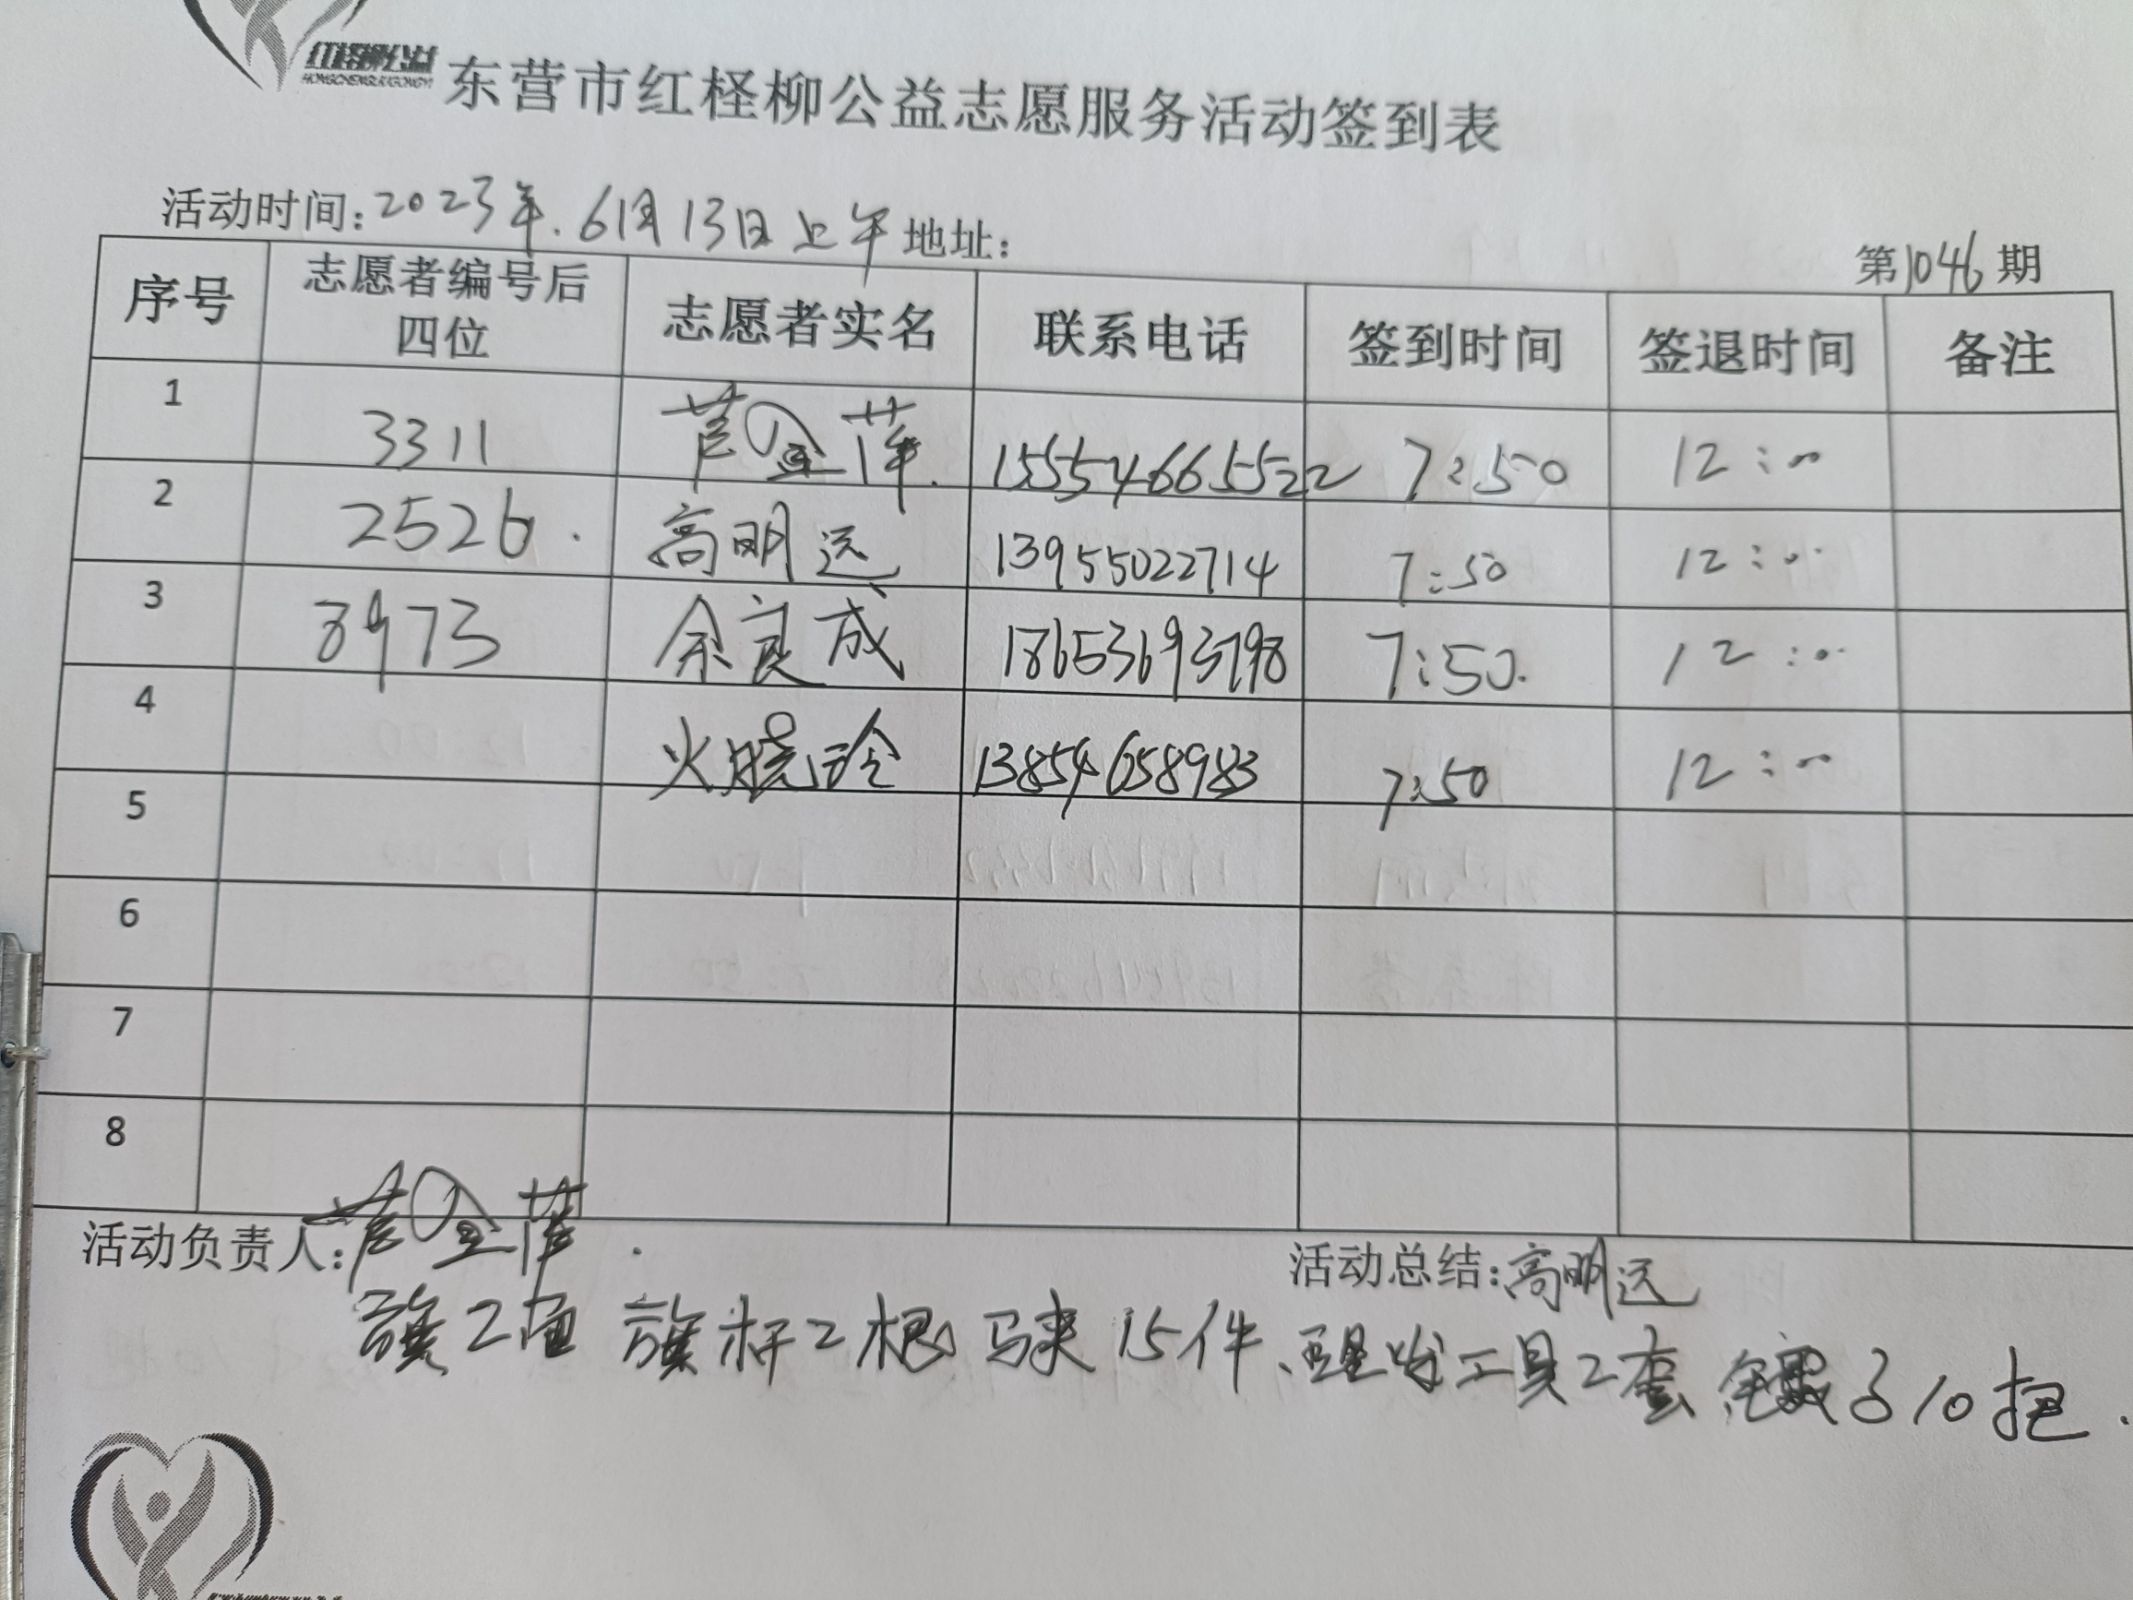 红柽柳公益
HONGCHENGLIUGONGYI
东营市红柽柳公益志愿服务活动签到表
活动时间:2023年.6月13日上午 地址: 第1046期
序号 志愿者编号后四位 志愿者实名 联系电话 签到时间 签退时间 备注
1 3311 芦金萍. 15554665522 7:50 12:00
2 2526. 高明远 13955022714 7:50 12:00
3 8973 余良成 18653693798 7:50. 12:00
4 火晓玲 13854658983 7:50 12:00
5
6
7
8
活动负责人:芦金萍. 活动总结:高明远
旗2面 旗杆2根 马夹15件、理发工具2套 子10把.